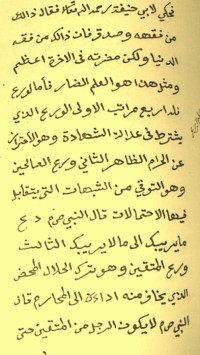 فحكي لابي حنيفة رحمه الله تعالى فقال ذالك
من فقهه وصدق فان ذالك من فقه
الدنيا ولكن مضرته في الاخرة اعظم
ومثل هذا هو العلم الضار فأما الورع
فله اربع مراتب الاولى الورع الذي
يشترط في عدالة الشهادة وهو الاحتراز
عن الحرام الظاهر الثاني ورع الصالحين
وهو التوقي من الشبهات التي يتقابل
فيها الاحتمالات قال النبي صم دع
ما يريبك الى ما لا يريبك الثالث
ورع المتقين وهو ترك الحلال المحض
الذي يخاف منه اداءك الى المحارم قال
النبي صم لا يكون الرجل من المتقين حتى